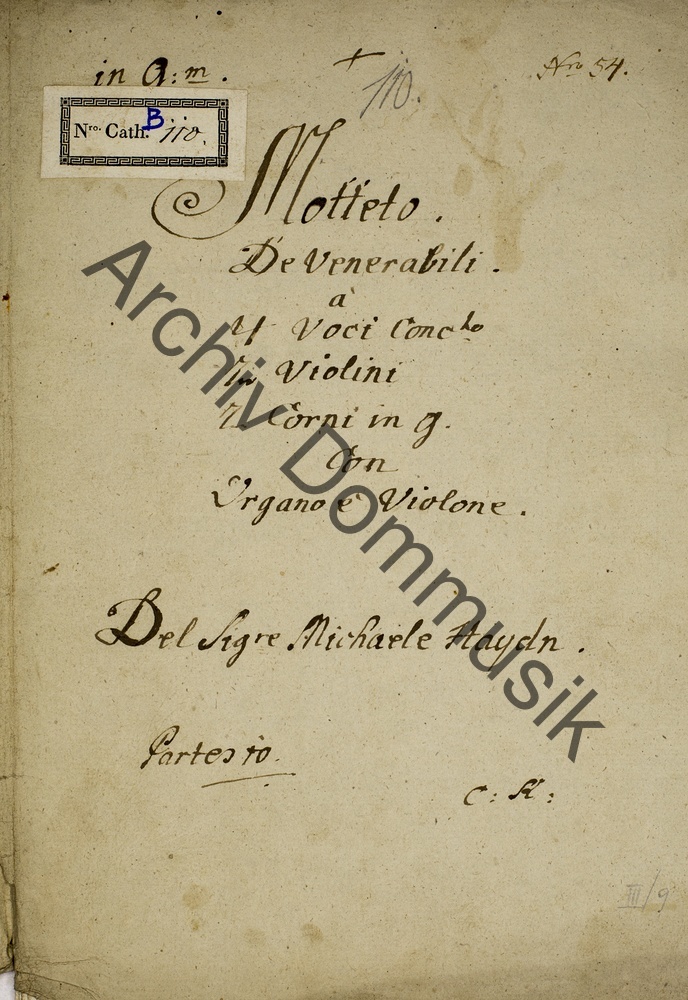 in G: m.
Nro 54.
110.
Nro. Cath. B 110.
Motteto.
De Venerabili.
à
4 Voci Conc.to
2 Violini
2 Corni in g.
Con
Organo è Violone.
Del Sigre Michaele Haydn.
Partes 10.
C: K:
III/9
Archiv Dommusik